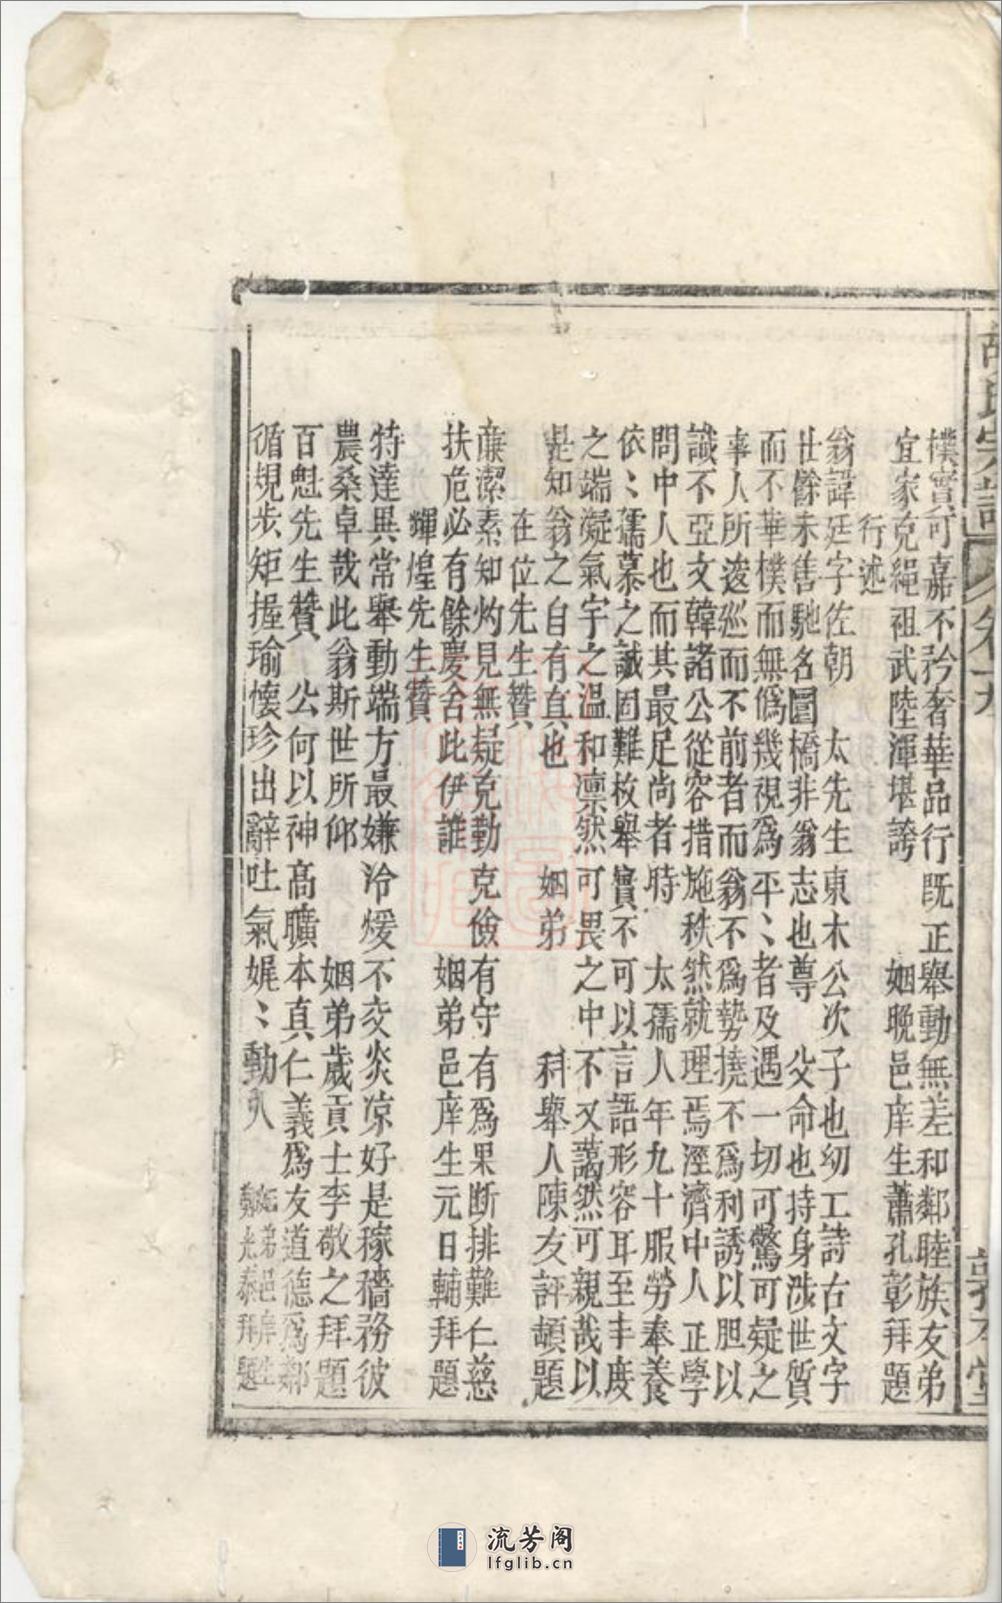 胡氏宗譜 卷十九 敦本堂
樸實可嘉不矜奢華品行既正舉動無差和鄰睦族友弟
宜家克繩祖武陸渾堪誇 姻晚邑庠生蕭孔彰拜題
行述
翁諱廷字佐朝 太先生東木公次子也幼工詩古文字
壯餘未售馳名圜橋非翁志也尊 父命也持身涉世質
而不華樸而無僞幾視爲平〻者及遇一切可驚可疑之
事人所逡巡而不前者而翁不爲勢撓不爲利誘以胆以
識不亞文韓諸公從容措施秩然就理焉溼濟中人正學
問中人也而其最足尚者時 太孺人年九十服勞奉養
依〻孺慕之誠固難枚舉實不可以言語形容耳至丰度
之端凝氣宇之溫和凛然可畏之中不又藹然可親哉以
是知翁之自有真也 姻弟 科舉人陳友評頓題
在位先生贊
亷潔素知灼見無疑克勤克儉有守有爲果断排難仁慈
扶危必有餘慶舍此伊誰 姻弟邑庠生元日輔拜題
輝煌先生贊
特達異常舉動端方最嫌冷煖不交炎凉好是稼穡務彼
農桑卓哉此翁斯世所仰 姻弟歲貢士李敬之拜題
百魁先生贊 公何以神高曠本真仁義爲友道德爲鄰
循規步矩握瑜懷珍出辭吐氣娓〻動人 姻弟邑庠生鄭光泰拜題
流芳阁
lfglib.cn